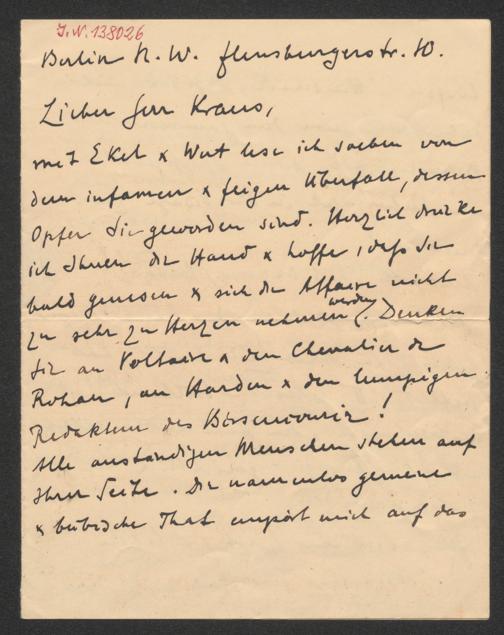 I.N. 138026
Berlin N.W. Flensburgerstr. 10.
Lieber Herr Kraus,
mit Ekel & Wut lese ich soeben von
dem infamen & feigen Überfall, dessen
Opfer Sie geworden sind. Herzlich drücke
ich Ihnen die Hand & hoffe, daß Sie
bald genesen & sich die Affaire nicht
zu sehr zu Herzen nehmen werden. Denken
Sie an Voltaire & den Chevalier de
Rohan, an Harden & den lumpigen
Redakteur des Börsencourir!
Alle anständigen Menschen stehen auf
Ihrer Seite. Die namenlos gemeine
& bübische That empört mich auf das